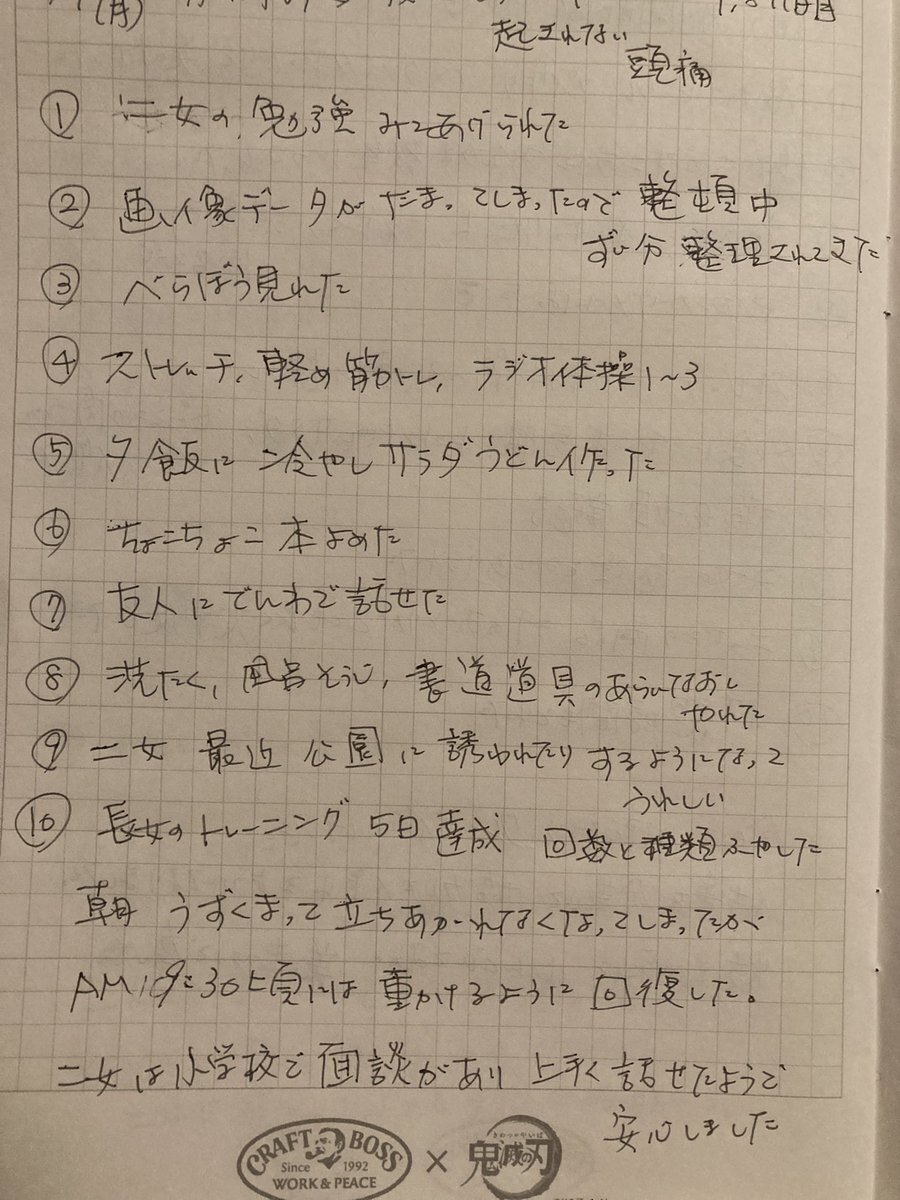 (月)
起きれてない
頭痛
① 二女の勉強 みてあげられた
② 画像データが たまってしまったので 整頓中
ずい分 整理されてきた
③ べらぼう見れた
④ ストレッチ、軽め筋トレ、ラジオ体操1~3
⑤ 夕飯に 冷やしサラダうどん作った
⑥ ちょこちょこ 本よめた
⑦ 友人にでんわで話せた
⑧ 洗たく、風呂そうじ、書道道具のあらいなおし
やれた
⑨ 二女 最近 公園に誘われたりするようになって
うれしい
⑩ 長女のトレーニング 5日達成 回数と種類ふやした
朝 うずくまって立ちあがれなくなってしまったが
AM:9:30頃には 動けるように回復した。
二女は小学校で面談があり 上手く話せたようで
安心しました
CRAFT BOSS
Since 1992
WORK & PEACE
×
きめつのやいば
鬼滅の刃